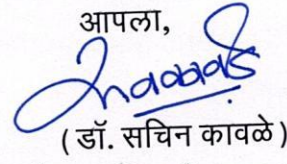 आपला,
( डॉ. सचिन कावळे )